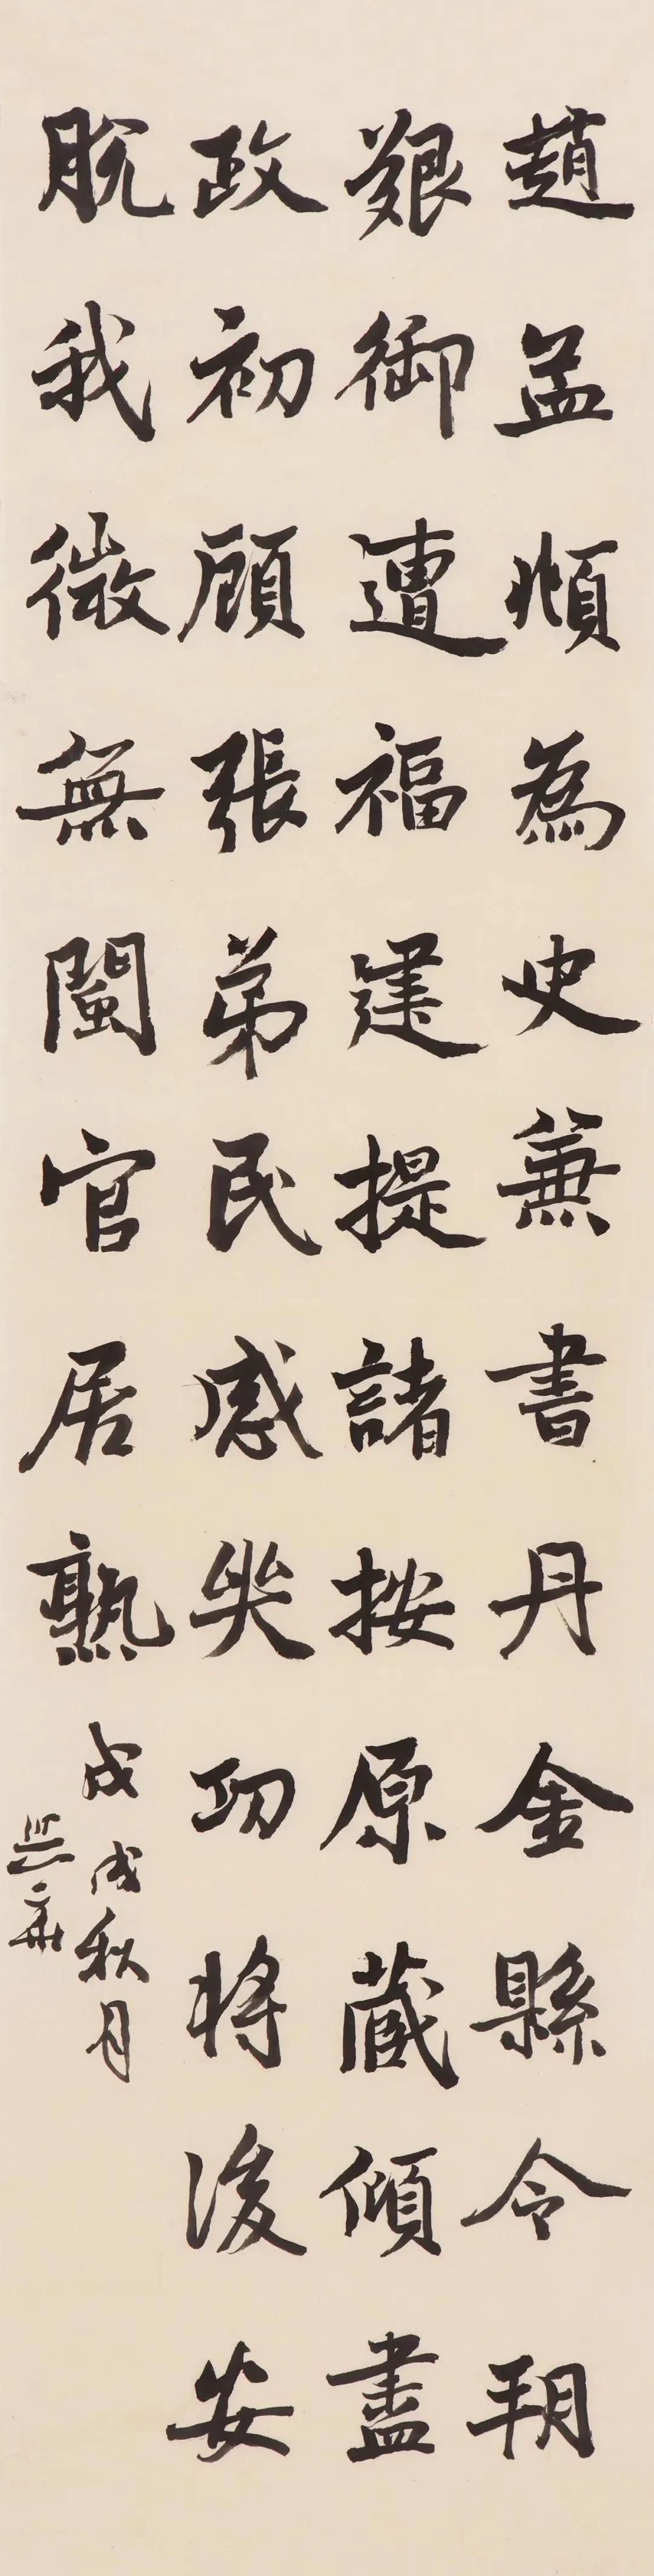 趙孟頫為史兼書丹金縣令朔
艱御遭福建提諸按原藏傾盡
政初顧張弟民感失功將後安
脫我微無閩官居熟
戊戌秋月